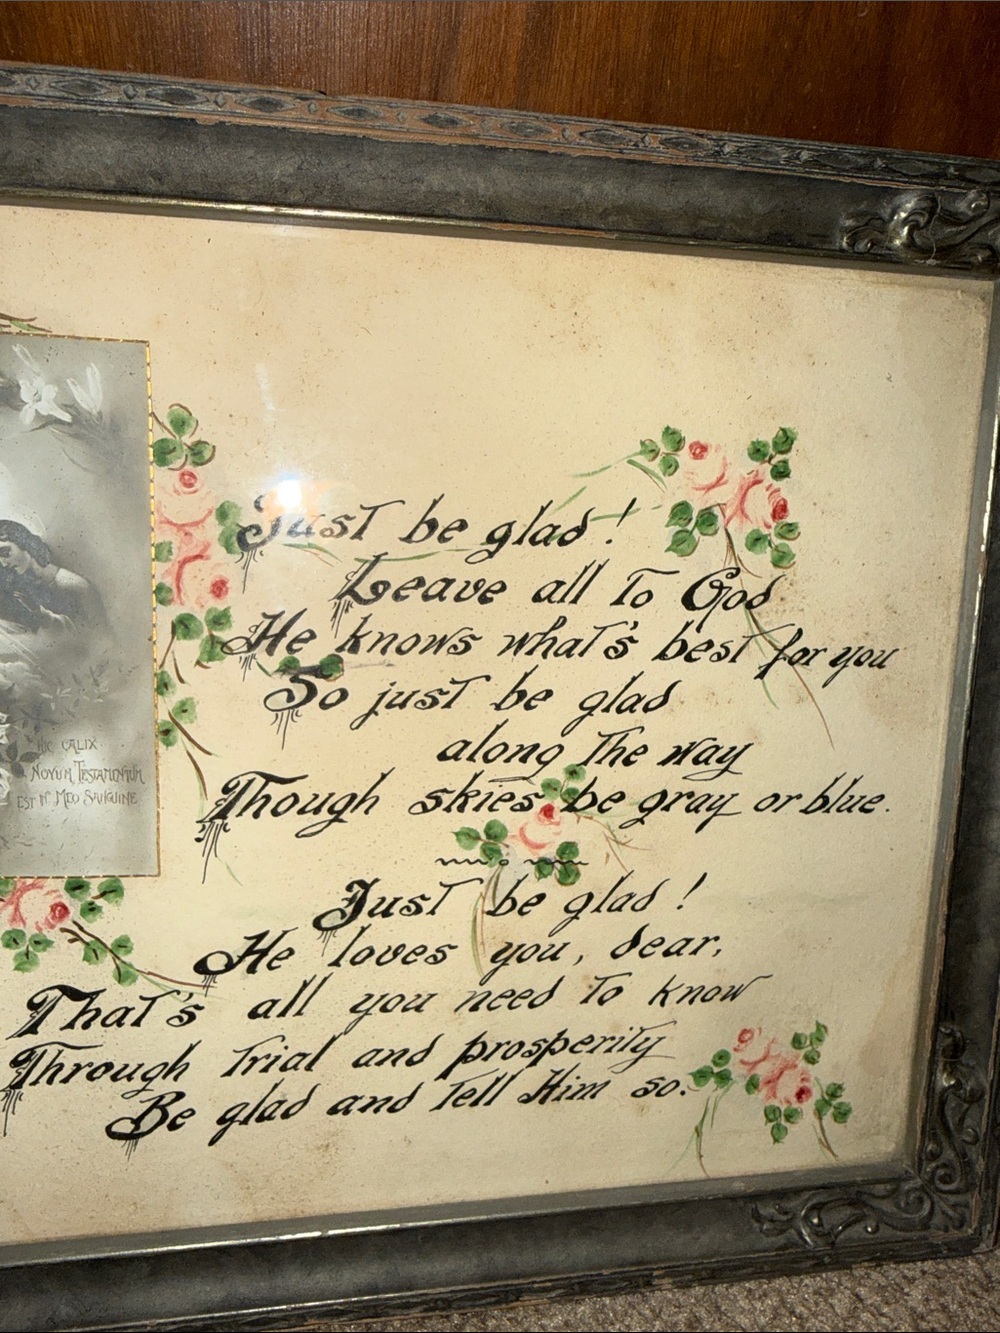 HIC CALIX
NOVUM TESTAMENTUM
EST IN MEO SANGUINE
Just be glad!
Leave all to God
He knows what's best for you
So just be glad
along the way
Though skies be gray or blue.
Just be glad!
He loves you, dear,
That's all you need to know
Through trial and prosperity
Be glad and tell Him so.